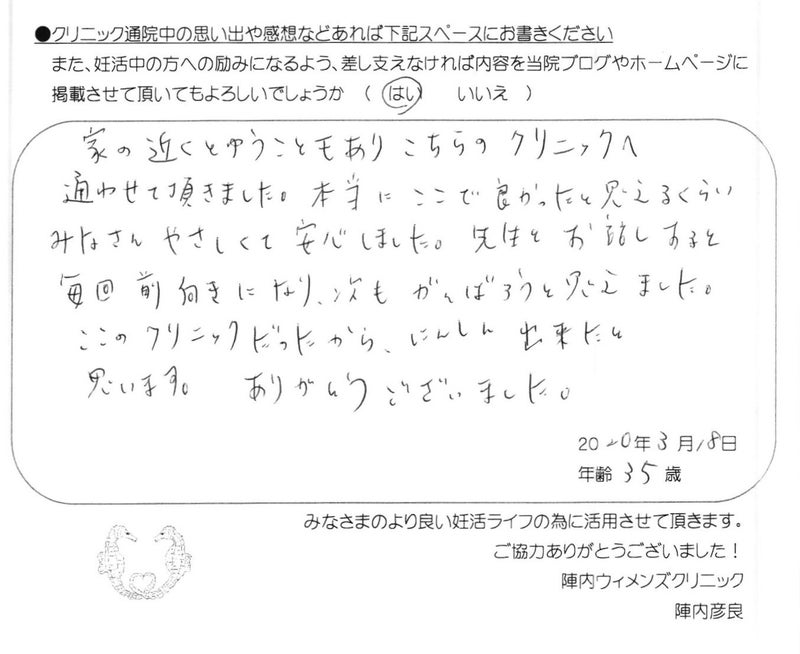 ●クリニック通院中の思い出や感想などあれば下記スペースにお書きください
また、妊活中の方への励みになるよう、差し支えなければ内容を当院ブログやホームページに
掲載させて頂いてもよろしいでしょうか （ はい いいえ ）
家の近くとゆうこともあり こちらの クリニックへ
通わせて頂きました。本当に ここで 良かったと思えるくらい
みなさん やさしくて 安心しました。先生と お話しすると
毎回 前向きになり、次も がんばろうと思えました。
ここの クリニックだったから、にんしん 出来たと
思います。 ありがとう ございました。
2020年3月18日
年齢 35歳
みなさまのより良い妊活ライフの為に活用させて頂きます。
ご協力ありがとうございました！
陣内ウィメンズクリニック
陣内彦良